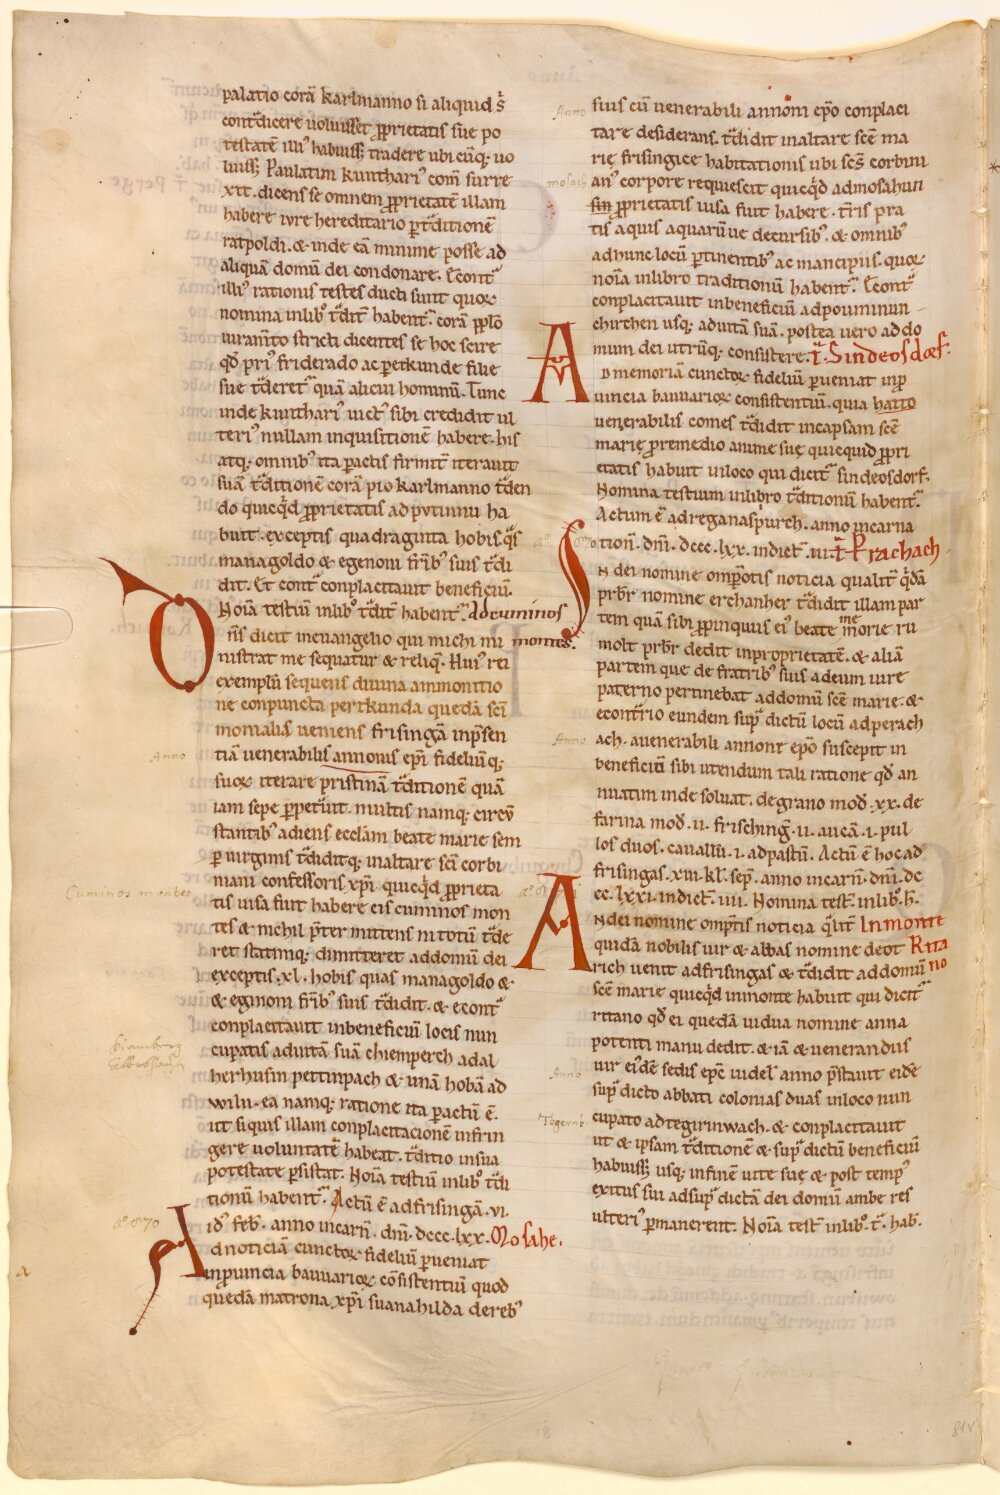 palatio corā karlmanno si aliquid s̄
contᵃdicere uoluisset ꝓprietatis sue po
testatē illi' habuiss; tradere ubicūq; uo
luiss; Paulatim kunthari' com̄ surre
xit. dicens se omnem ꝓprietatē illam
habere iure hereditario ꝑ tᵃditionē
ratpoldi. & inde eā minime posse ad
aliquā domū dei condonare. Econtᵃ
illi' rationis testes ducti sunt quoꝝ
nomina inlib' tᵃdit' habent̄. corā pplō
iuram̄to stricti dicentes se hoc scire
qd̄ pri' friderado ac perkunde filie
sue tᵃderet quā alicui hominū. Tunc
inde kunthari' uict' sibi credidit ul
teri' nullam inquisitionē habere. his
atq; omnib' ita ꝑactis firmit̄ iterauit
suā tᵃditionē corā pio karlmanno tᵃden
do quicqd̄ ꝓprietatis ad putinnu ha
buit. exceptis quadraginta hobis. qͣs
managoldo & egenoni fr̄ib' suis tᵃdi
dit. Et contᵃ conplacitauit beneficiū.
Noīa testiū inlib' tᵃdit' habent̄. ad cuminos
Dn̄s dicit in euangelio qui michi mi montes.
nistrat me sequatur & reliq. Hui' rei
exemplū sequens diuina ammonitio
ne conpuncta perkunda quedā sc̄i
monialis ueniens frisingā inp̄sen
Anno tiā uenerabilis annonis ep̄i fideliūq;
suoꝝ iterare pristinā tᵃditionē quā
iam sepe ꝑpetᵃuit. multis namq; circū
stantib' adiens eccl̄am beate marie sem
ꝑ uirginis tᵃdiditq; inaltare sc̄i corbi
niani confessoris xp̄i quicqd̄ ꝓprieta
Cuminos montes tis uisa fuit habere eis cuminos mon
tes & nichil p̄ter mittens ni totū tᵃde
ret statimq; dimitteret addomū dei
exceptis .xl. hobis quas managoldo &
& eginoni fr̄ib' suis tᵃdidit. & econtᵃ
conplacitauit inbeneficiū locis nun
cupatis aduitā suā chiemperch adal
herhusin pettinpach & unā hobā ad
wilu. ea namq; ratione ita ꝑactū ē.
ut siquis illam conplacitacionē infrin
gere uoluntatē habeat. tᵃditio insua
potestate ꝑsistat. Noīa testiū inlib' tᵃdi
tionū habent̄. Actū ē adfrisingā. vi.
aº 870 id' feb̄. anno incarn̄. dm̄. dccc. lxx. Mosahe.
Ad noticiā cunctoꝝ fidelium ꝑueniat
inꝓuincia bauuarioꝝ cōsistentiū quod
quedā matrona xp̄i suanahilda dereb'
Anno suis cū uenerabili annoni ep̄o conplaci
tare desiderans. tᵃdidit inaltare sc̄e ma
rie frisingice habitationis ubi sc̄s corbini
mosach an' corpore requiescit quicqd̄ admosahun
sin ꝓprietatis uisa fuit habere. t̄ris pra
tis aquis aquarūue decursib'. & omnib'
adhunc locū ꝑtinentib' ac mancipiis. quoꝝ
noīa inlibro traditionū habent̄. Econtᵃ
conplacitauit inbeneficiū adpouminun
chirchen usq; aduitā suā. postea uero addo
mum dei utrūq; consistere. T̄. Sindeosdorf.
Ad memoriā cunctoꝝ fidelium ꝑueniat inꝓ
uincia bauuarioꝝ consistentiū. quia hatto
uenerabilis comes tᵃdidit incapsam sc̄e
marie ꝓremedio anime sue quicquid ꝓpri
etatis habuit inloco qui dicit̄ sindeosdorf.
Nomina testium inlibro tᵃditionū habent̄.
Actum ē adreganaspurch. anno incarna
tion̄. dm̄. dccc. lxx. indict̄. iii. T̄. Prachach
In dei nomine omp̄otis noticia qualit̄ qͥdā
prb̄r nomine erchanher tᵃdidit illam par
tem quā sibi ꝓpinquus ei' beate memorie ru
molt prb̄r dedit inproprietatē. & aliā
partem que de fratrib' suis adeum iure
paterno pertinebat addomū sc̄e marie. &
econtᵃrio eundem supᵃ dictū locū adperach
Anno ach. auenerabili annoni ep̄o suscepit in
beneficiū sibi utendum tali ratione qd̄ an
nuatim inde soluat. degrano mod̄. xx. de
farina mod̄. ii. frischinḡ. ii. aucā. i. pul
los duos. cauallū. i. adpastū. Actū ē hoc ad
frisingas. xiii. kl̄. sep̄. anno incarn̄. dm̄. dc
cc. lxxi. indict̄. iiii. Nomina test̄. inlib'. h̄.
In dei nomine omp̄tis noticia qͣlit̄ Inmonte
quidā nobilis uir & abbas nomine deot Rita
rich uenit adfrisingas & tᵃdidit addomū no
sc̄e marie quicqd̄ inmonte habuit qui dicit̄
ritano qd̄ ei quedā uidua nomine anna
potenti manu dedit. & iā & uenerandus
Anno uir ei'dē sedis ep̄c uidel̄ anno p̄stauit eidē
supᵃ dicto abbati colonias duas inloco nun
Tegernb. cupato adtegirinwach. & conplacitauit
ut & ipsam tᵃditionē & supᵃ dictū beneficiū
habuiss; usq; infinē uite sue & post temp'
exitus sui adsupᵃ dictā dei domū ambe res
ulteri' ꝑmanerent. Noīa test̄ inlib'. t̄. hab̄.
81v